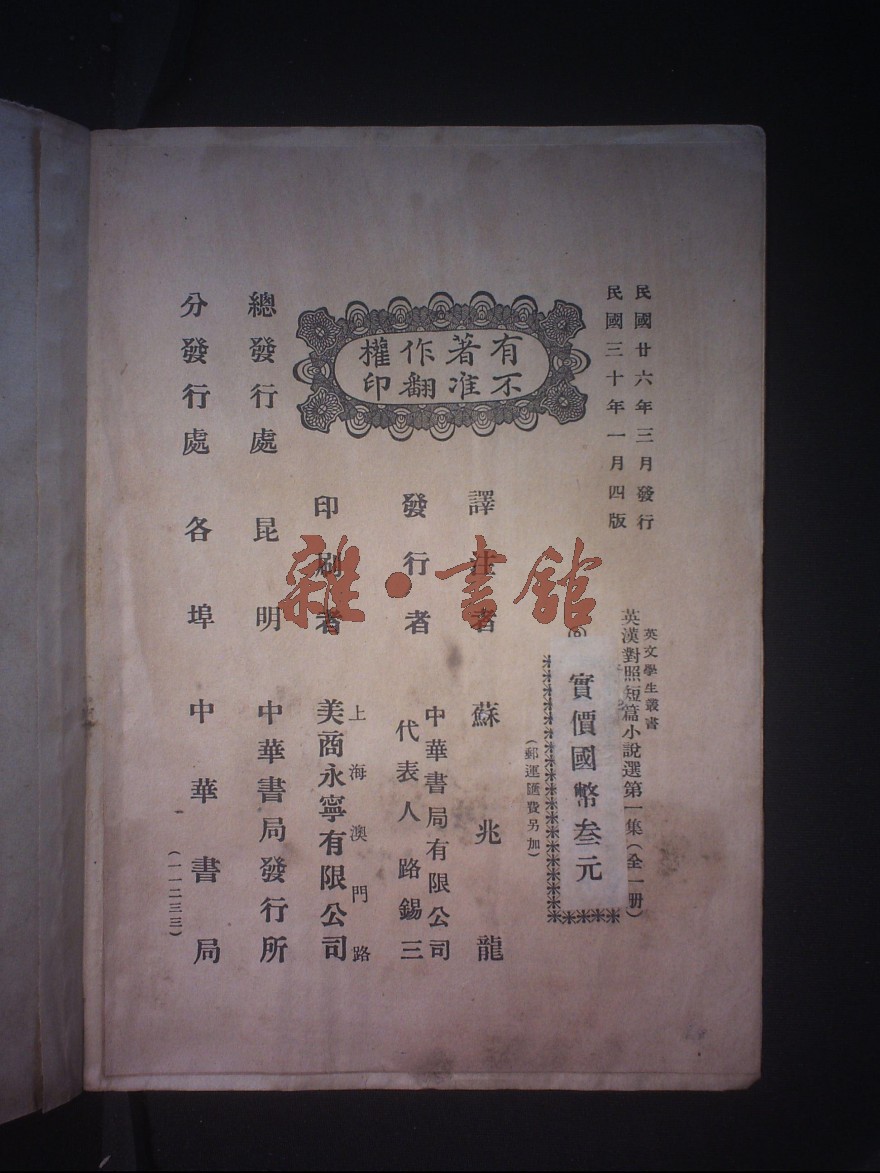 民國廿六年三月發行
民國三十年一月四版
有著作權
不准翻印
英文學生叢書
英漢對照短篇小說選第一集(全一册)
實價國幣叁元
(郵運匯費另加)
譯注者 蘇兆龍
發行者 中華書局有限公司
代表人 路錫三
印刷者 上海澳門路
美商永寧有限公司
總發行處 昆明 中華書局發行所
分發行處 各埠 中華書局
(一一二三三)
雜·書館